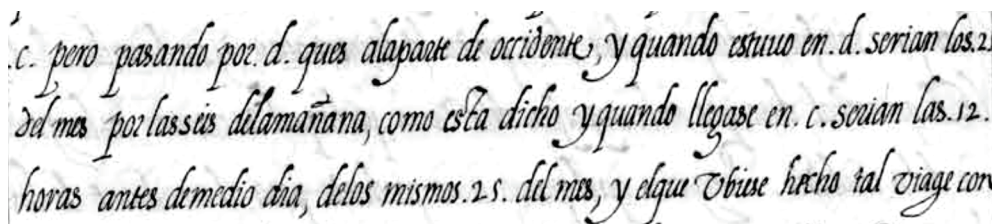 c. pero pasando por. d. ques alaparte de occidente, y quando estuuo en. d. serian los.2
del mes por las seis delamañana, como esta dicho y quando llegase en. c. serian las. 12.
horas antes demedio dia, delos mismos. 25. del mes, y elque Vbiese hecho tal viage con